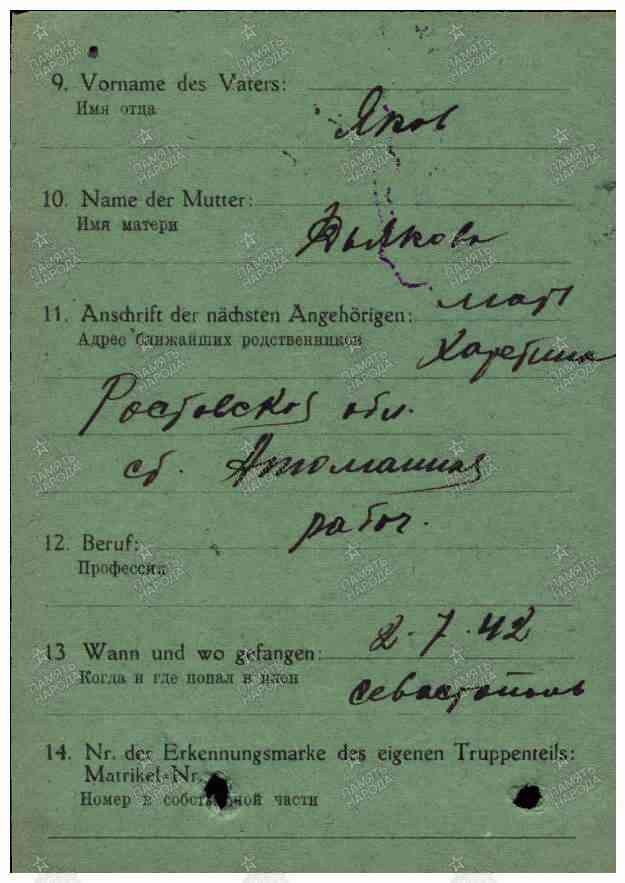 9. Vorname des Vaters:
Имя отца
Яков
10. Name der Mutter:
Имя матери
Дьякова
11. Anschrift der nächsten Angehörigen:
мать
Адрес ближайших родственников
Харетина
Ростовская обл.
ст.
12. Beruf:
рабоч.
Профессия
13 Wann und wo gefangen:
2.7.42
Когда и где попал в плен
Севастополь
14. Nr. der Erkennungsmarke des eigenen Truppenteils:
Matrikel-Nr.
Номер в собственной части
ПАМЯТЬ НАРОДА